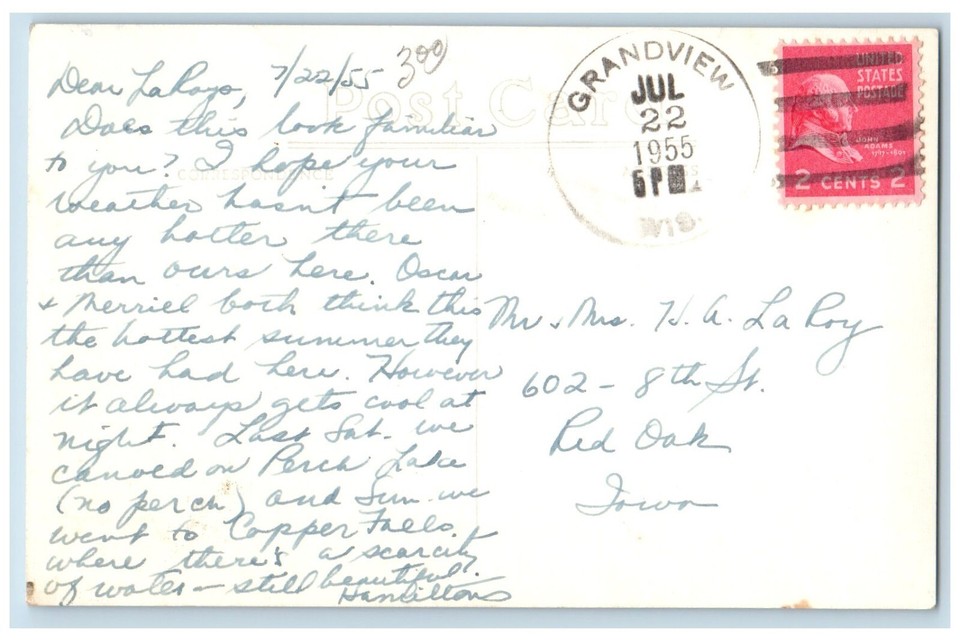 Dear LaRoys, 7/22/55 300
Post Card
Does this look familiar
to you? I hope your
CORRESPONDENCE
weather hasn't been
any hotter there
than ours here. Oscar
& Merriel both think this
the hottest summer they
have had here. However
it always gets cool at
night. Last Sat. we
canoed on Perch Lake
(no perch) and Sun. we
went to Copper Falls.
where there's a scarcity
of water - still beautiful.
Hamiltons
GRANDVIEW
JUL
22
1955
5 PM
WIS.
UNITED
STATES
POSTAGE
JOHN
ADAMS
1797-1801
2 CENTS 2
Mr & Mrs. H. A. LaRoy
602 - 8th St.
Red Oak
Iowa